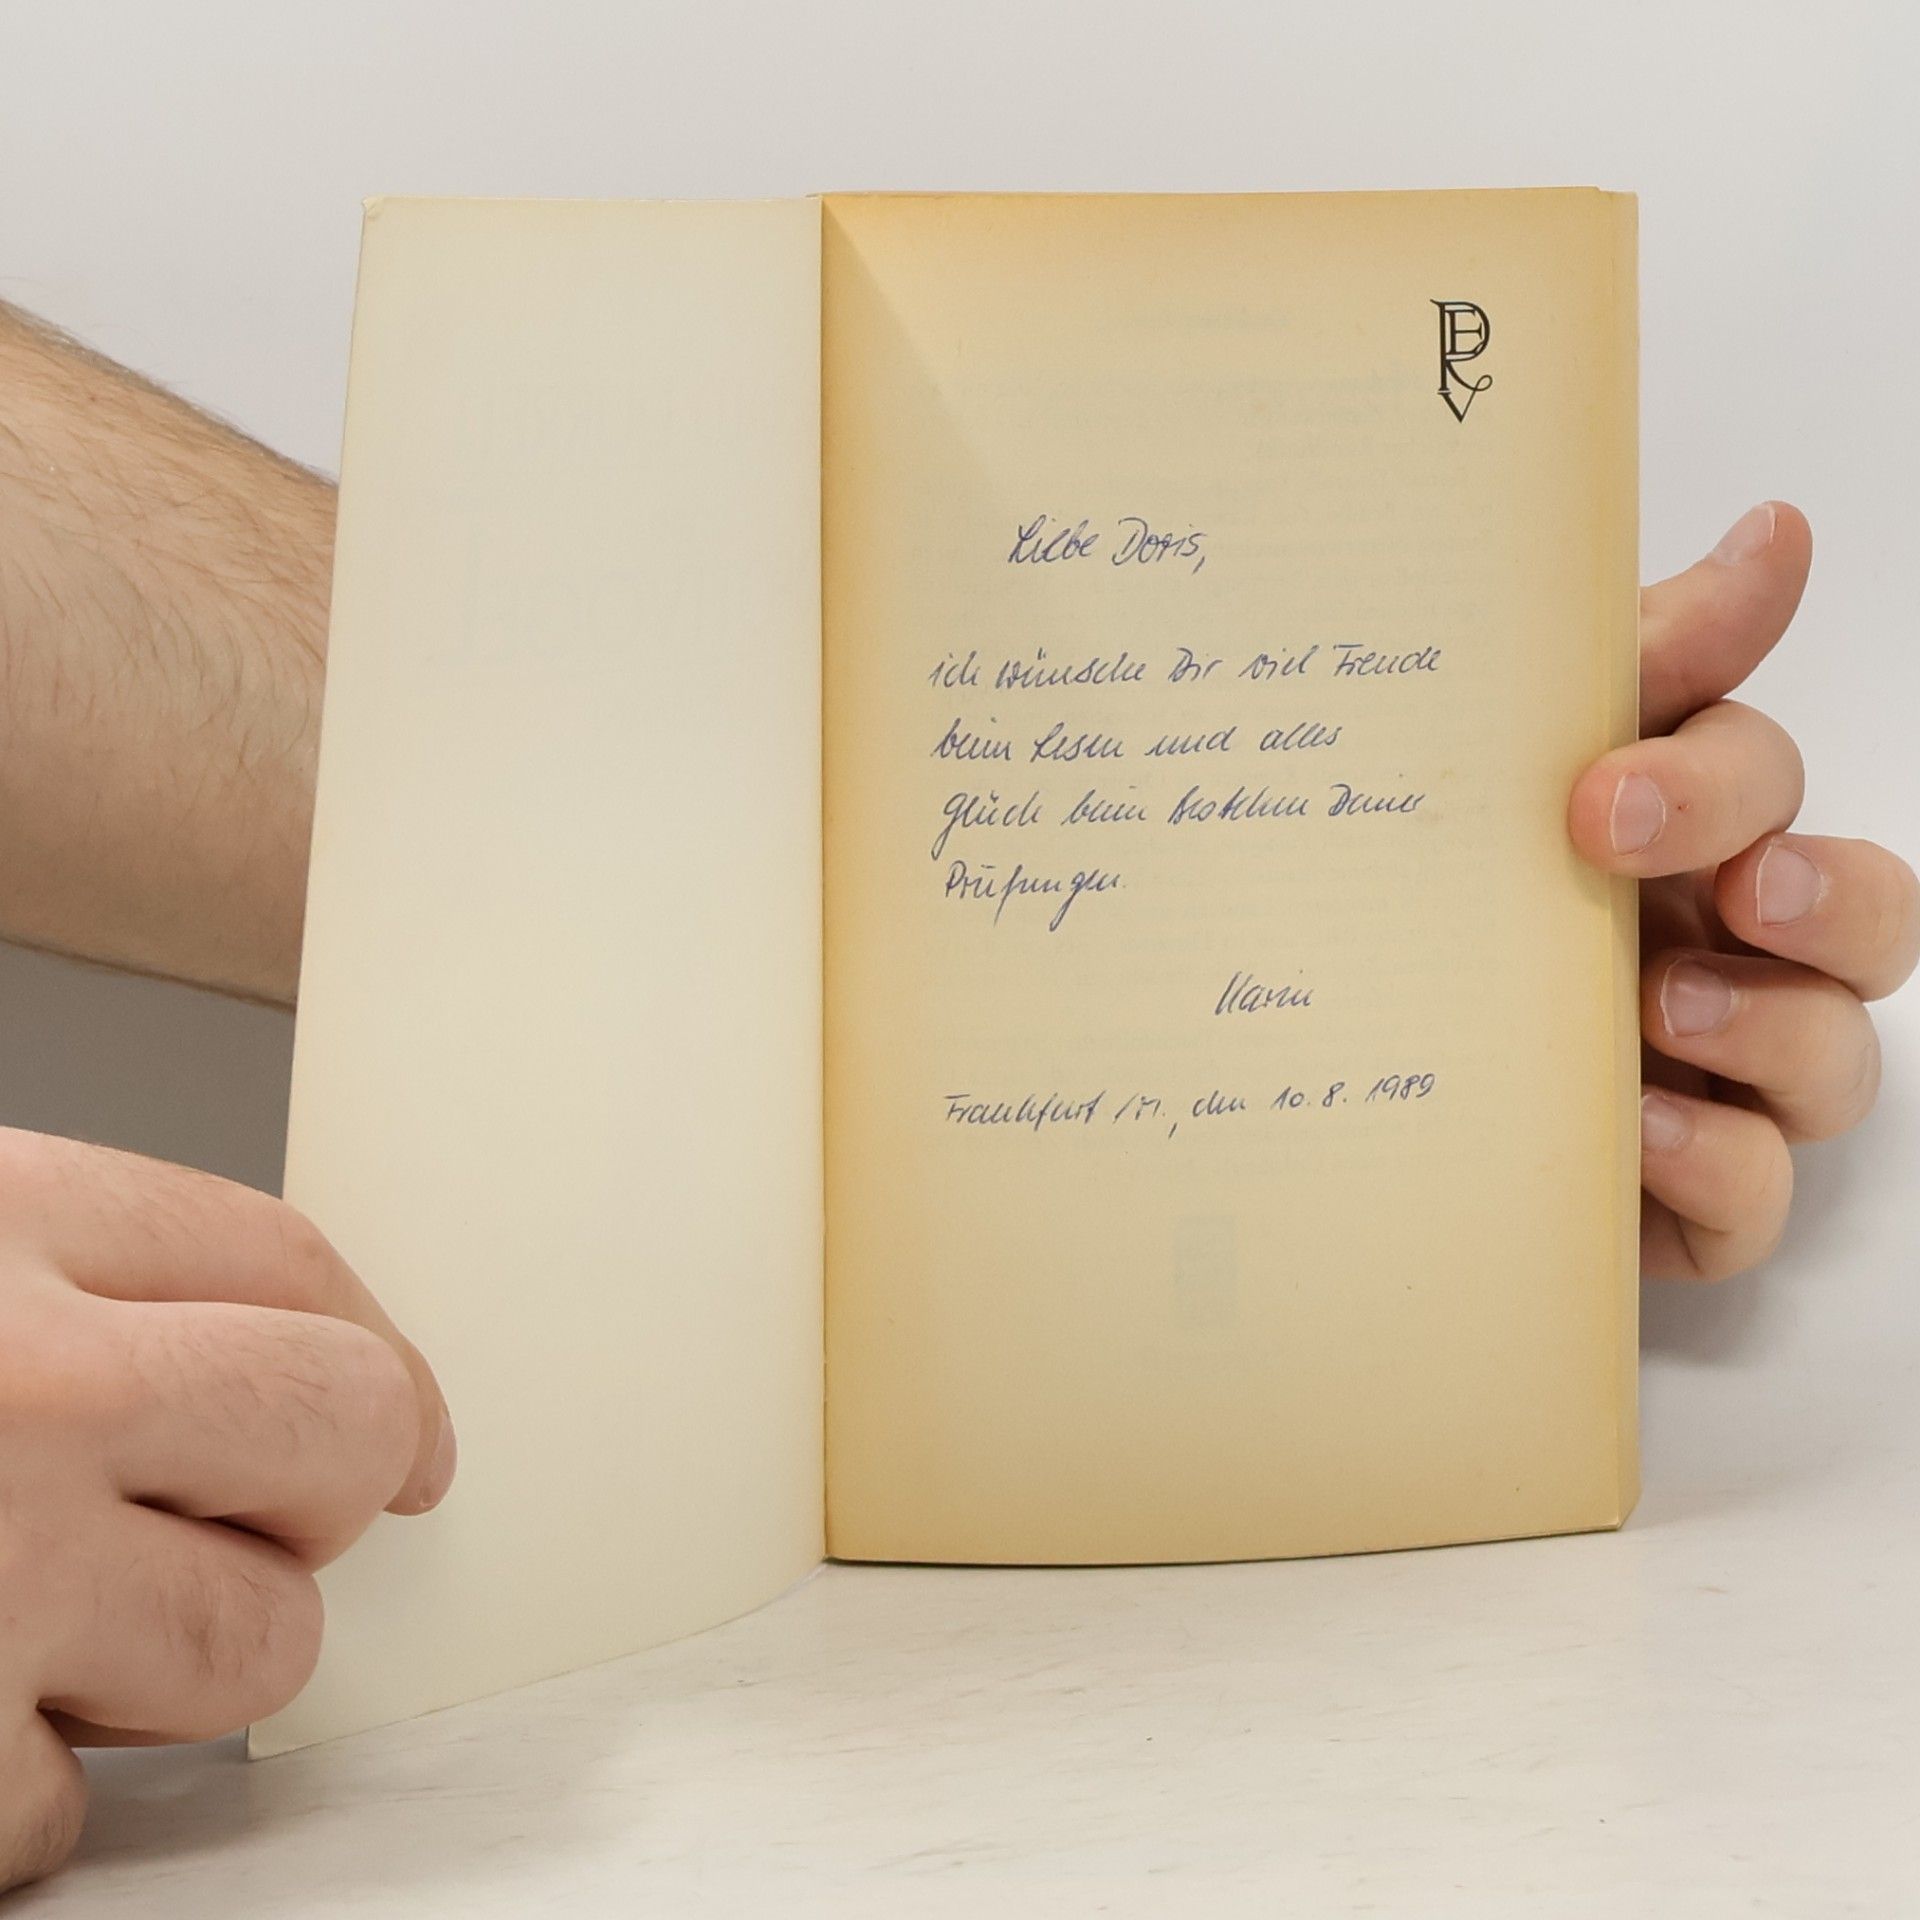 Liebe Doris,
ich wünsche Dir viel Freude
beim Lesen und alles
Glück beim Bestehen Deiner
Prüfungen.
Karin
Frankfurt /M., den 10.8.1989